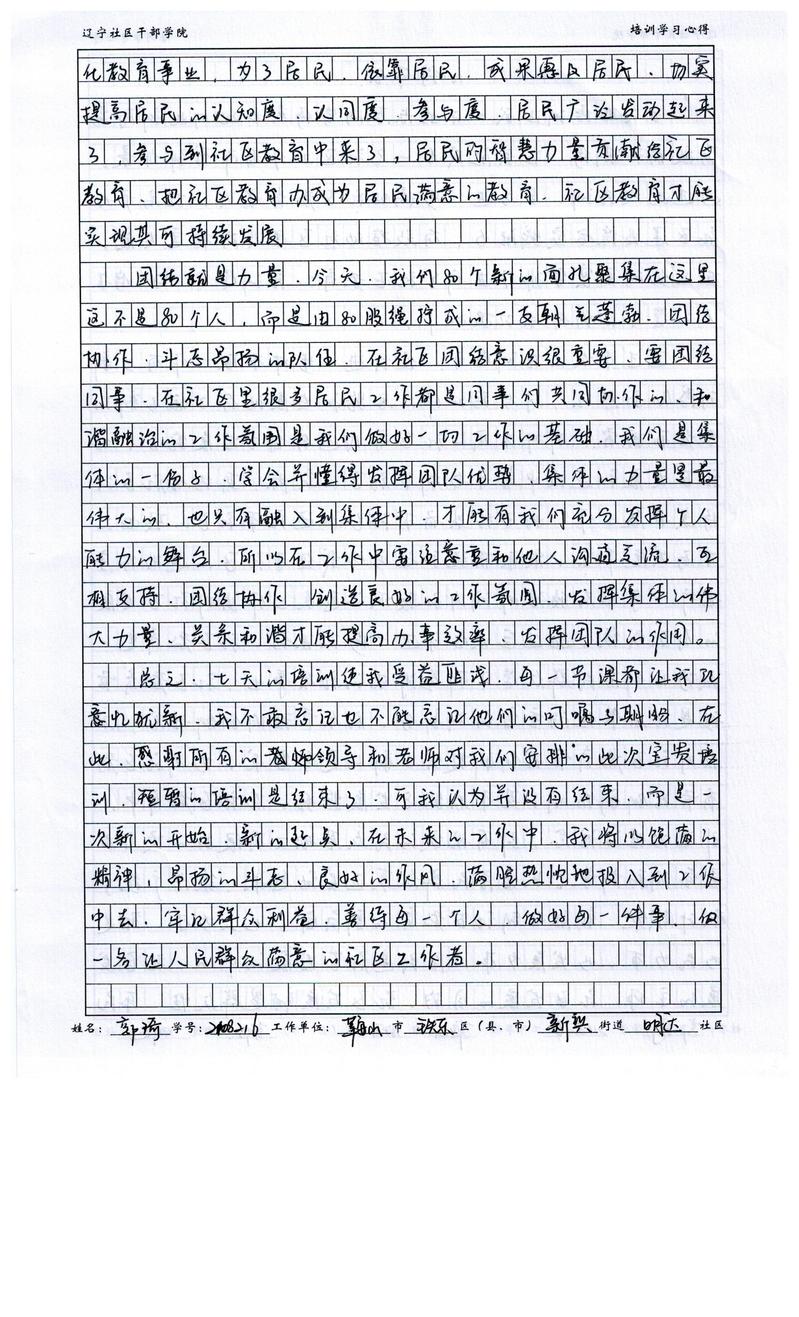 辽宁社区干部学院 培训学习心得
化教育事业，为了居民，依靠居民，成果惠及居民，切实
提高居民的认知度、认同度、参与度，居民广泛发动起来
了，参与到社区教育中来了，居民的智慧力量贡献给社区
教育，把社区教育办成为居民满意的教育，社区教育才能
实现其可持续发展
团结就是力量，今天，我们80个新的面孔聚集在这里
这不是80个人，而是由80股绳拧成的一支朝气蓬勃、团结
协作、斗志昂扬的队伍，在社区团结意识很重要，要团结
同事，在社区里很多居民工作都是同事们共同协作的，和
谐融洽的工作氛围是我们做好一切工作的基础，我们是集
体的一份子，学会并懂得发挥团队优势，集体的力量是最
伟大的，也只有融入到集体中，才能有我们充分发挥个人
能力的舞台，所以在工作中要注意要和他人沟通交流，互
相支持，团结协作，创造良好的工作氛围，发挥集体的伟
大力量，关系和谐才能提高办事效率，发挥团队的作用。
总之，七天的培训使我受益匪浅，每一节课都让我记
意忆犹新，我不敢忘记也不能忘记他们的叮嘱与期盼，在
此，感谢所有的教师领导和老师对我们安排的此次宝贵培
训，短暂的培训是结束了，可我认为并没有结束，而是一
次新的开始，新的起点，在未来的工作中，我将以饱满的
精神，昂扬的斗志，良好的作风，满腔热忱地投入到工作
中去，牢记群众利益，善待每一个人，做好每一件事，做
一名让人民群众满意的社区工作者。
姓名： 郭琦 学号： 2108216 工作单位： 鞍山 市 铁东 区（县、市） 新兴 街道 明达 社区